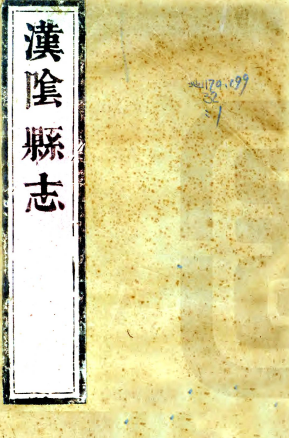 漢陰縣志
地174.299
32
:1